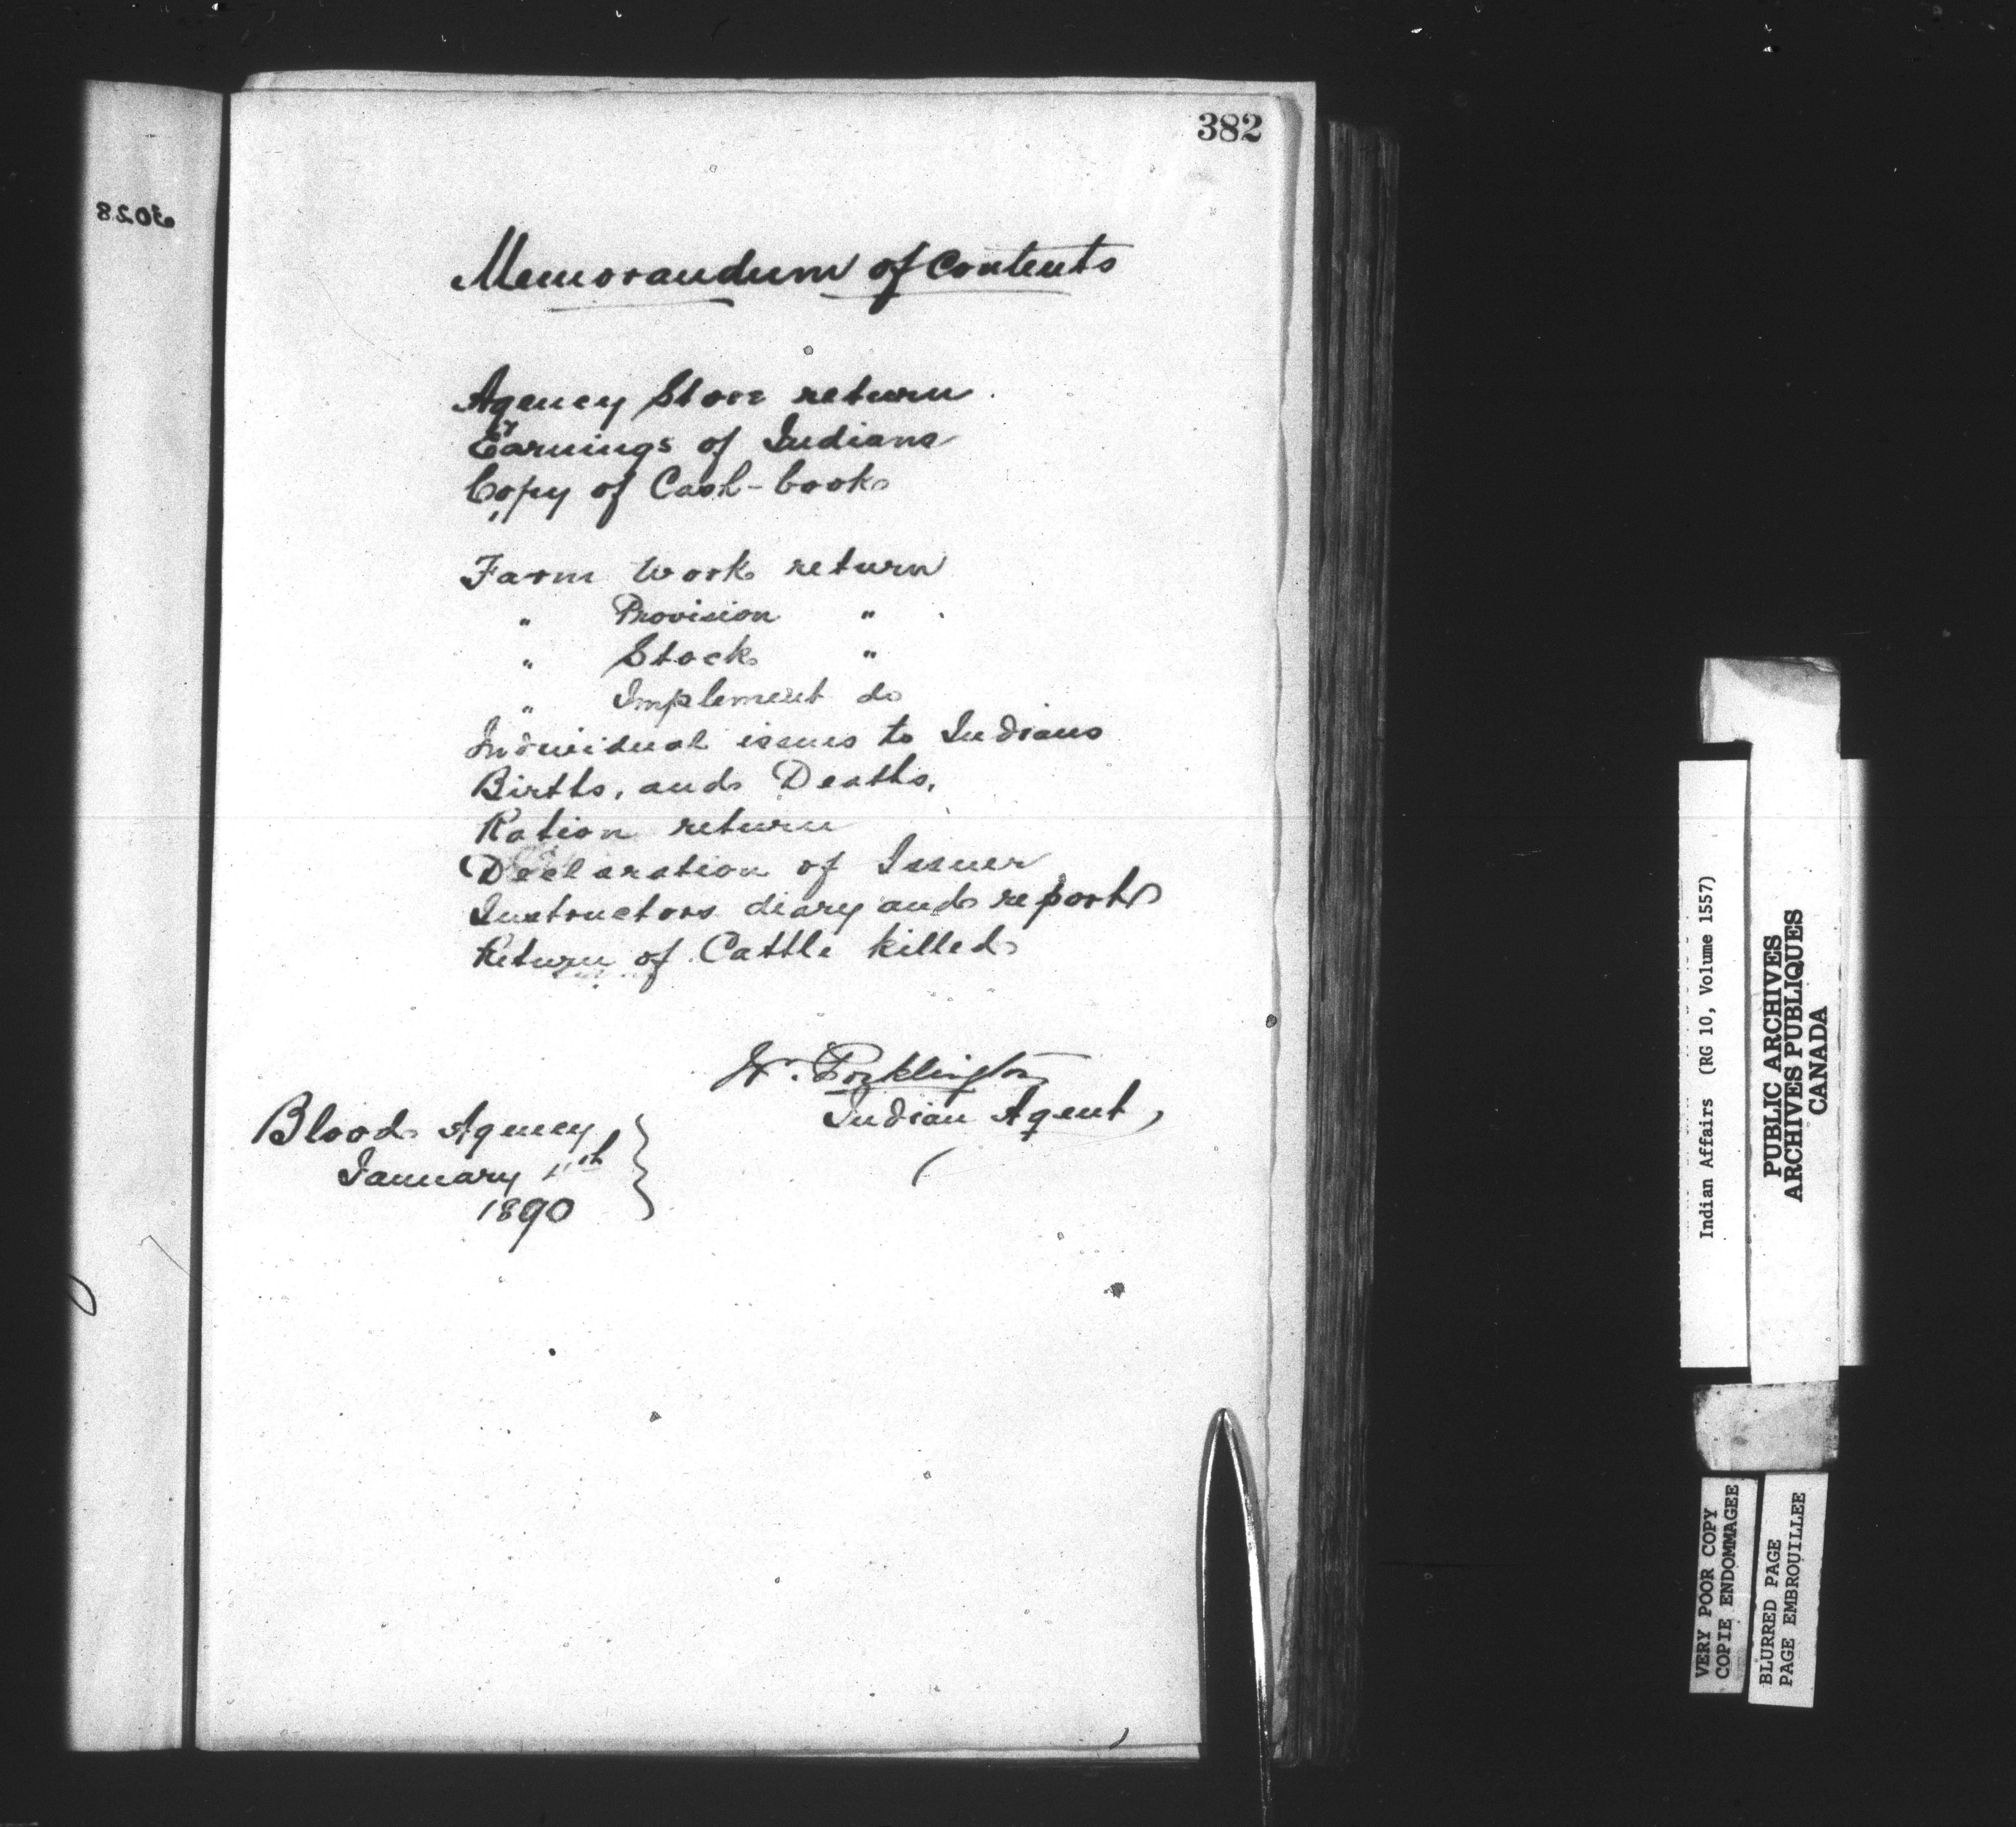 382
Memorandum of Contents
Agency Store return
Earnings of Indians
Copy of Cash-book
Farm Work return
" Provision "
" Stock "
" Implement do
Individual issues to Indians
Births, and Deaths,
Ration return
Declaration of Issuer
Instructors diary and report
Return of Cattle killed
W. Pocklington
Indian Agent
Blood Agency
January
1890
Indian Affairs (RG 10, Volume 1557)
PUBLIC ARCHIVES
ARCHIVES PUBLIQUES
CANADA
VERY POOR COPY
COPIE ENDOMMAGEE
BLURRED PAGE
PAGE EMBROUILLEE